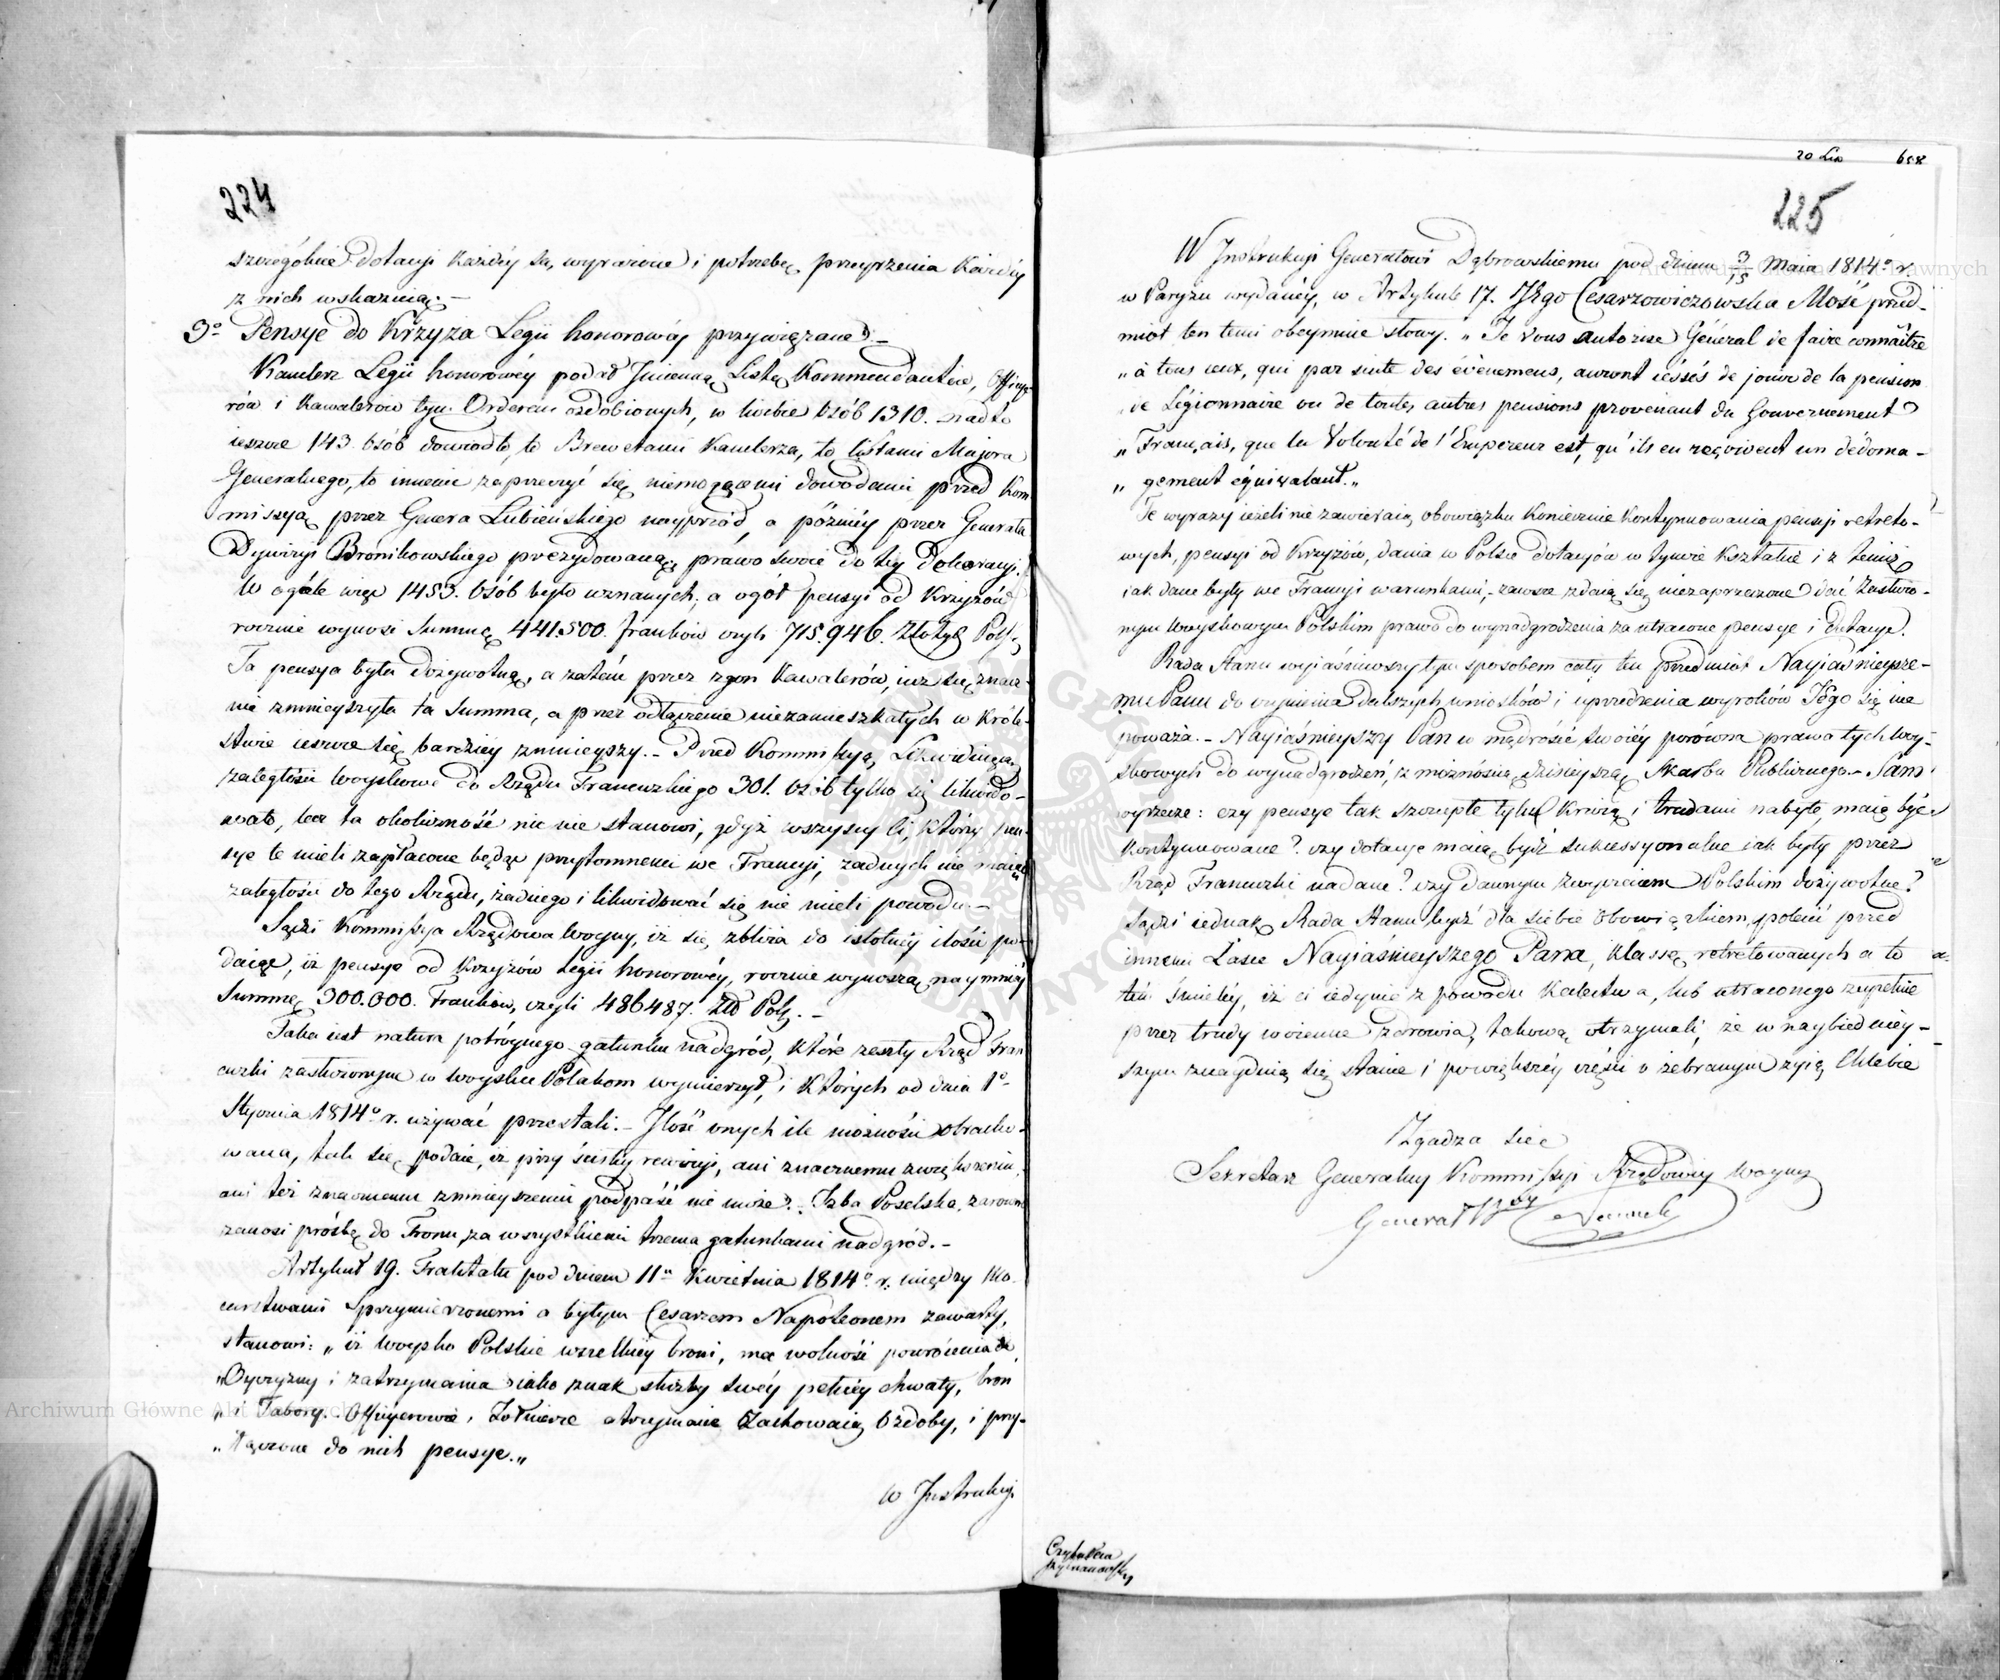 224
szczególnie dotacyi każdéy są, wyrażone i potrzebę przeyrzenia każdéy
z nich wskazuią. —
3º Pensye do Krzyża Legii honorowéy przywiązane. —
Kanclerz Legii honorowéy podał Jmienną Listę Kommendantów, Offiye-
rów i Kawalerów tym Orderem ozdobionych, w liczbie Osób 1310. nadto
ieszcze 143. Osób dowiodło, to Brewetami Kanclerza, to listami Majora
Generalnego, to innemi zaprzeczyć się niemogącemi dowodami przed Kom-
missyą przez Genera Lubieńskiego nayprzód, a póżniéy przez Generała
Dywizyi Bronikowskiego prezydowaną, prawo swoie do téy dekoracyi.
W ogóle więc 1453. Osób było uznanych, a ogół pensyi od Krzyżów
rocznie wynosi Summę 441.500. franków czyli 715.946. Złotych Pols.
Ta pensya była dożywotnią, a zatém przez zgon Kawalerów, iuż się znacz-
nie zmnieyszyła ta Summa, a przez odłączenie niezamieszkałych w Króle-
stwie ieszcze się bardziéy zmnieyszy. — Przed Kommissyą Likwiduiącą
zaległości Woyskowe do Rządu Francuzkiego 301. Osób tylko się likwido-
wało, lecz ta okoliczność nic nie stanowi, gdyż wszyscy ci, którzy pen-
sye te mieli zapłacone będąc przytomnemi we Francyi, żadnych nie maiąc
zaległości do tego Rządu, żadnego i likwidować się nie mieli powodu. —
Sądzi Kommissya Rządowa Woyny, iż się zbliża do istotnéy ilości po-
daiąc, iż pensye od Krzyżów Legii honorowéy, rocznie wynoszą naymniéy
Summę 300.000. Franków, czyli 486487. Złł Pols. —
Taka iest natura potróynego gatunku nadgród, które zeszły Rząd Fran-
cuzki zasłużonym w Woysku Polakom wymierzył, i których od dnia 1º
Stycznia 1814º r. używać przestali. — Jlość onych ile możności obracho-
wana, tak się podaie, iż przy ścisłéy rewizyi, ani znacznemu zwiększeniu,
ani też znacznemu zmnieyszeniu podpaść nie może. — Izba Poselska, zarówno
zanosi prośbę do Tronu, za wszystkiemi trzema gatunkami nadgród. —
Artykuł 19. Traktatu pod dniem 11º Kwietnia 1814º r. między Mo-
carstwami Sprzymierzonemi a byłym Cesarzem Napoleonem zawarty,
stanowi: „ iż Woysko Polskie wszelkiéy broni, ma wolność powrócenia do
„ Oyczyzny i zatrzymania iako znak służby swéy pełnéy chwały, broń
„ i Tabory. Offiyerowie, Żołnierze otrzymane zachowaią Ozdoby, i przy-
„ łączone do nich pensye. „
W Jnstrukcyi
20 Lis 658
225
W Jnstrukcyi Generałowi Dąbrowskiemu pod dniem 3/15 Maia 1814º r.
w Paryżu wydanéy, w Artykule 17. JKgo Cesarzowiczowska Mość przed-
miot ten temi obeymuie słowy. „ Je Vous autorise Général de faire connaître
„ à tous ceux, qui par suite des évènemens, auront cessés de jouir de la pension
„ de Légionnaire ou de toutes autres pensions provenant du Gouvernement
„ Français, que la Volonté de l'Empereur est, qu'ils en reçoivent un dédoma-
„ gement équivalant. „
Te wyrazy ieżeli nie zawieraią obowiązku koniecznie kontynuowania pensyi retreto-
wych, pensyi od Krzyżów, dania w Polsce dotacyów w tymże kształcie i z temiż
iak dane były we Francyi warunkami, — zawsze zdaią się niezaprzeczone dać zasłużo-
nym Woyskowym Polskim prawo do wynadgrodzenia za utracone pensye i dotacye.
Rada Stanu wyiaśniwszy tym sposobem cały ten przedmiot Nayiaśnieysze-
mu Panu do czynienia dalszych wniosków i uprzedzenia wyroków Jego się nie
poważa. — Nayiaśnieyszy Pan w mądrości Swoiéy porówna prawa tych Woy-
skowych do wynadgrodzeń, z możnością dzisieyszą Skarbu Publicznego. — Sam
wyrzecze: czy pensye tak szczupłe tylu krwią i trudami nabyte, maią być
kontynuowane? czy dotacye maią bydź sukcessyonalne iak były przez
Rząd Francuzki nadane? czy dawnym zwyczaiem Polskim dożywotne?
Sądzi iednak Rada Stanu bydź dla siebie obowiązkiem, polecić przed
innemi Łasce Nayiaśnieyszego Pana, klassę retretowanych a to
tém śmieléy, iż ci iedynie z powodu kalectwa, lub utraconego zupełnie
przez trudy woienne zdrowia, takową otrzymali, że w naybiednieyi-
szym znayduią się stanie i powiększéy części o żebranym żyią Chlebie
Zgadza się
Sekretarz Generalny Kommissyi Rządowéy Woyny
Generał Bdy
Czytałem
Szymanowski